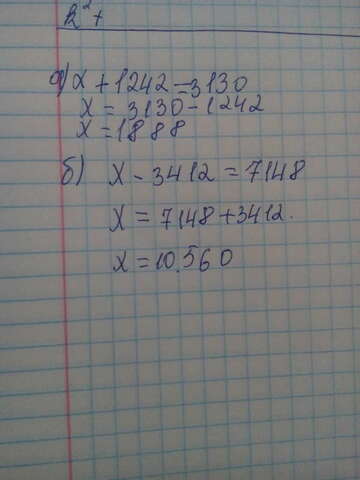 а) x + 1242 = 3130
x = 3130 - 1242
x = 1888
б) x - 3412 = 7148
x = 7148 + 3412.
x = 10.560